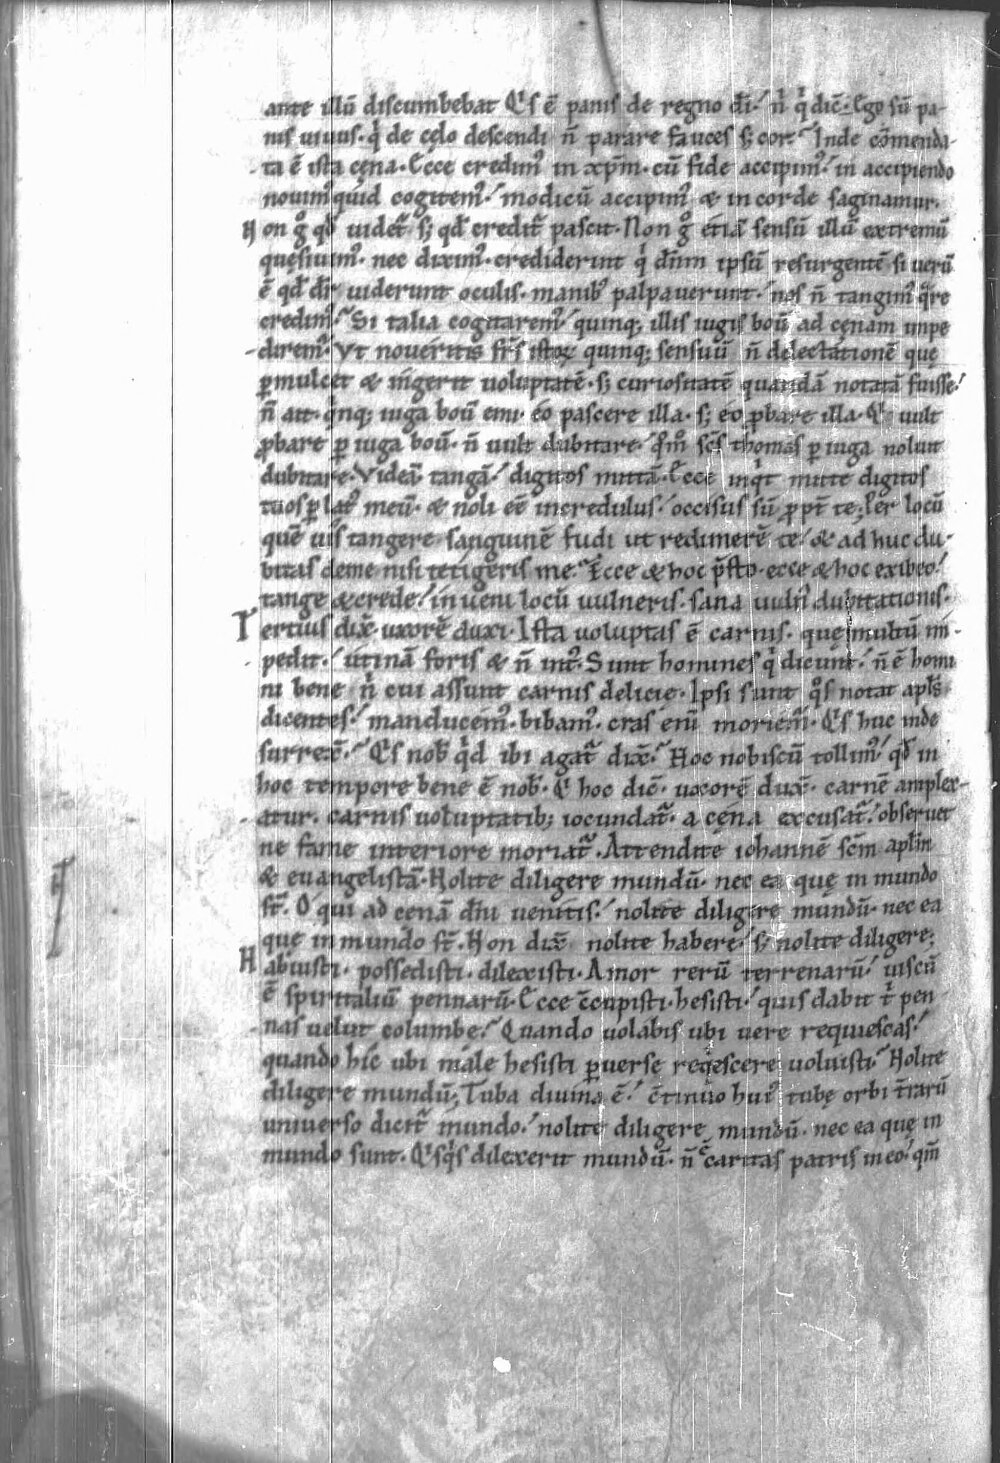 ante illū discumbebat Qͥs ē panis de regno dī ·́ nͥ qͥ dic̄· Ego sū pa-
nis uiuus· qͥ de cęlo descendi n̄ parare fauces s; cor· Inde cōmenda-
ta ē ista cęna· Ecce credimꝰ in xp̄m· cū fide accipimꝰ ·́ in accipiendo
nouimꝰ quid cogitemꝰ ·́ modicū accipimꝰ & in corde saginamur·
Non gͦ qđ uidet᷑ s; qđ credit᷑ pascit· Non gͦ etiā sensū illū extremū
quęsiuimꝰ· nec diximꝰ· crediderint qͥ dn̄m ipsū resurgentē si uerū
ē qđ dr̄ uiderunt oculis· manibꝰ palpauerunt ·́ nos n̄ tangimꝰ qͣre
credimꝰ ·́ Si talia cogitaremꝰ ·́ quinq; illis iugis boū ad cęnam inpe
-diremꝰ· Vt noueritis fr̄s istoꝝ quinq; sensuū n̄ delectationē quę
ꝑmulcet & ingerit uoluptatē· s; curiositatē quandā notatā fuisse ·́
n̄ ait· qͥnq; iuga boū emi· eo pascere illa· s; eo ꝓbare illa· Qͥ uult
ꝓbare ꝑ iuga boū· n̄ uult dubitare· qͦmͦ sc̄s thomas ꝑ iuga noluit
dubitare· Videā tangā ·́ digitos mittā· Ecce inqͥt mitte digitos
tuos ꝑ latꝰ meū· & noli eē incredulus ·́ occisus sū ꝓpt̄ te; Per locū
quē uis tangere sanguinē fudi ut redimerē te ·́ & ad huc du-
bitas de me nisi tetigeris me· Ecce & hoc p̄sto· ecce & hoc exibeo ·́
tange & crede ·́ inueni locū uulneris· sana uulnꝰ dubitationis·
Tertius dix̄· uxorē duxi· Ista uoluptas ē carnis· quę multū im-
pedit ·́ utinā foris & n̄ intꝰ· Sunt homines qͥ dicunt ·́ n̄ ē homi
ni bene nͥ cui assunt carnis delicie· Ipsi sunt qͦs notat apl̄s
dicentes ·́ manducemꝰ· bibamꝰ· cras eni moriemꝰ· Qͥs huc inde
surrex̄ ·́ Qͥs nob̄ qͥd ibi agat᷑ dix̄ ·́ Hoc nobiscū tollimꝰ ·́ qđ in
hoc tempore bene ē nob̄· Qͥ hoc dic̄· uxorē dux̄· carnē amplex-
atur· carnis uoluptatib; iocundat᷑· a cęna excusat᷑ ·́ obseruet
ne fame interiore moriat᷑· Attendite iohannē sc̄m apl̄m
& euangelistā· Nolite diligere mundū· nec ea quę in mundo
st̄· O qui ad cenā dn̄i uenitis ·́ nolite diligere mundū· nec ea
quę in mundo st̄· Non dix̄ nolite habere ·́ s; nolite diligere;
Habuisti· possedisti· dilexisti· Amor rerū terrenarū ·́ uiscū
ē spiritaliū pennarū· Ecce c̄cupisti· hesisti ·́ quis dabit tͥ pen
-nas uelut columbe ·́ Quando uolabis ubi uere requiescas ·́
quando hic ubi male hesisti ꝑuerse reqͥescere uoluisti ·́ Nolite
diligere mundū; Tuba diuina ē ·́ c̄tinuo huiꝰ tubę orbi tr̄arū
uniuerso dicit᷑ mundo ·́ nolite diligere mundū· nec ea quę in
mundo sunt· Qͥsqͥs dilexerit mundū· n̄ ē caritas patris in eo ·́ qm̄